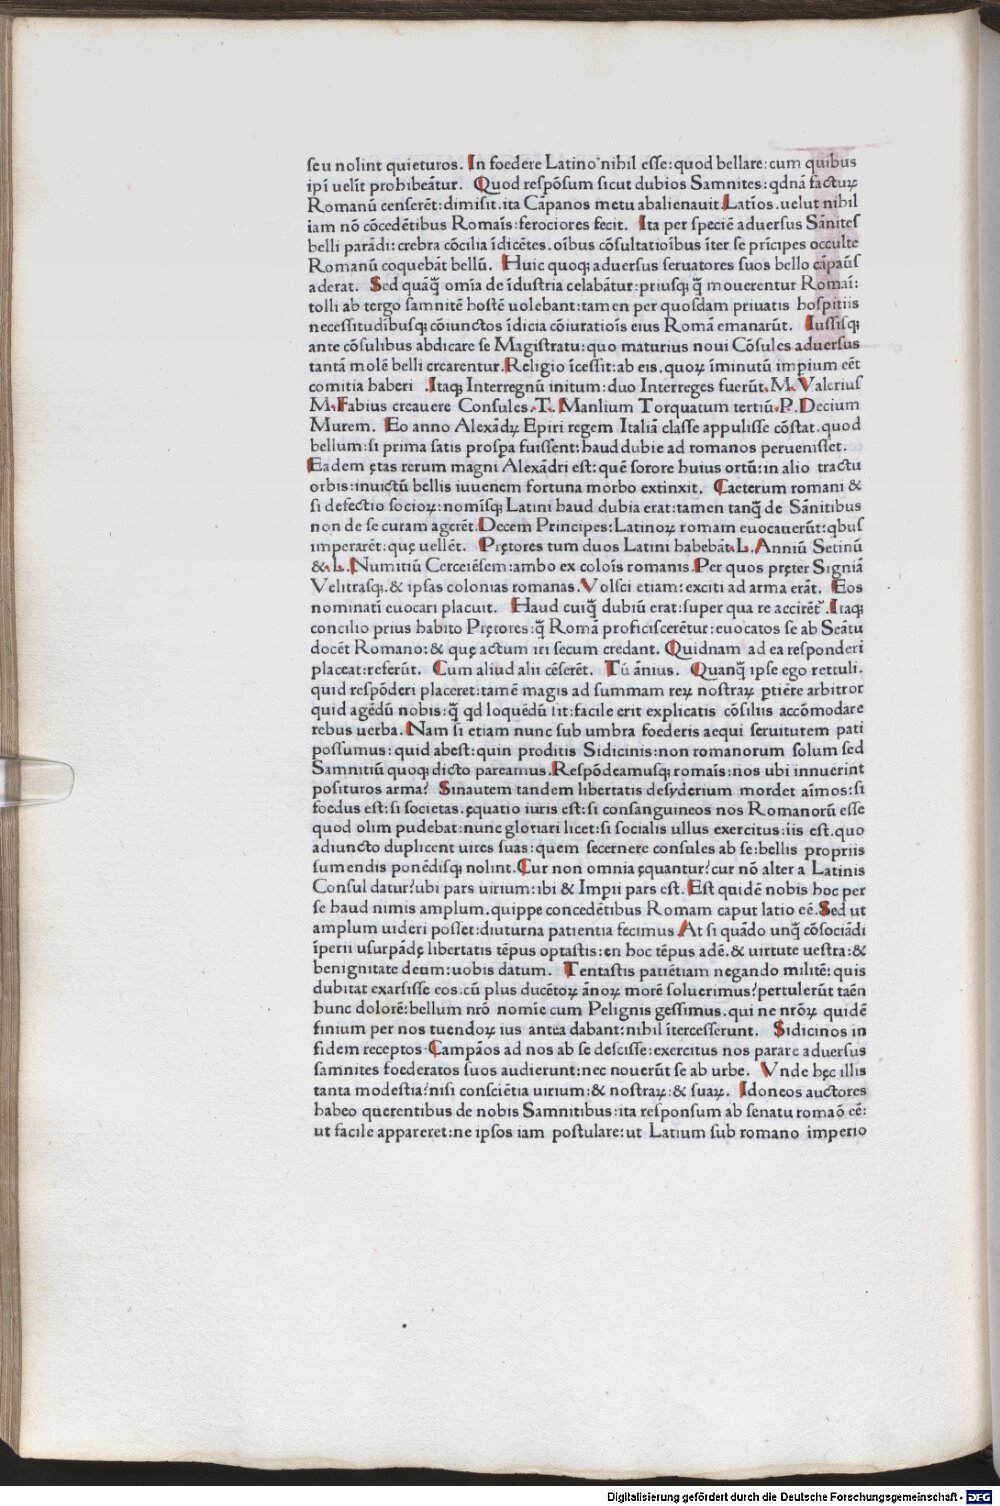 seu nolint quieturos. In foedere Latino nihil esse:quod bellare:cum quibus
ipi uelīt prohibeātur. Quod respōsum sicut dubios Samnites:qdnā factuꝝ
Romanū censerēt:dimisit.ita Cāpanos metu abalienauit.Latīos.uelut nihil
iam nō cōcedētibus Romaīs:ferociores fecit. Ita per speciē aduersus Sānites
belli parādi:crebra cōcilia īdicētes.oībus cōsultatioībus īter se prīcipes occulte
Romanū coquebāt bellū. Huic quoqꝫ aduersus seruatores suos bello cāpaūs
aderat. Sed quāqꝫ̄ omīa de īdustria celabātur:priusqꝫ q̄ꝫ mouerentur Romaī:
tolli ab tergo samnitē hostē uolebant:tamen per quosdam priuatis hospitiis
necessitudibusqꝫ cōiunctos īdicia cōiuratioīs eius Romā emanarūt. Iussisqꝫ
ante cōsulibus abdicare se Magistratu:quo maturius noui Cōsules aduersus
tantā molē belli crearentur.Religio īcessit:ab eis.quoꝝ īminutū impium eēt
comitia haberi .Itaqꝫ Interregnū initum:duo Interreges fuerūt.M.Valerius
M.Fabius creauere Consules.T. Manlium Torquatum tertiū.P.Decium
Murem. Eo anno Alexādꝝ Epiri regem Italiā classe appulisse cōstat.quod
bellum:si prima satis prospa fuissent:haud dubie ad romanos peruenisset.
Eadem ętas rerum magni Alexādri est:quē sorore huius ortū:in alio tractu
orbis:inuictū bellis iuuenem fortuna morbo extinxit. Caeterum romani &
si defectio socioꝝ:nomīsqꝫ Latini haud dubia erat:tamen tanq̄ꝫ de Sānitibus
non de se curam agerēt.Decem Principes:Latinoꝝ romam euocauerūt:qbus
imperarēt:quę uellēt. Pretores tum duos Latini habebāt.L.Anniū Setinū
&.L.Numitiū Cerceiēsem:ambo ex coloīs romanis.Per quos pręter Signiā
Velitrasqꝫ.& ipsas colonias romanas.Volsci etiam:exciti ad arma erāt. Eos
nominati euocari placuit. Haud cuiq̄ꝫ dubiū erat:super qua re accirēt̄.Itaqꝫ
concilio prius habito Prętores:q̄ꝫ Romā proficiscerētur:euocatos se ab Seātu
docēt Romano:& quę actum iri secum credant. Quidnam ad ea responderi
placeat:referūt. Cum aliud alii cēserēt. Tū ānius. Quanq̄ꝫ ipse ego rettuli.
quid respōderi placeret:tamē magis ad summam reꝝ nostraꝝ ptiēre arbitror
quid agēdū nobis:q̄ꝫ qd loquēdū sit:facile erit explicatis cōsiliis accōmodare
rebus uerba.Nam si etiam nunc sub umbra foederis aequi seruitutem pati
possumus:quid abest:quin proditis Sidicinis:non romanorum solum sed
Samnitiū quoqꝫ dicto pareamus.Respōdeamusqꝫ romaīs:nos ubi innuerint
posituros arma? Sinautem tandem libertatis desyderium mordet aīmos:si
foedus est:si societas.ęquatio iuris est:si consanguineos nos Romanorū esse
quod olim pudebat:nunc gloriari licet:si socialis ullus exercitus:iis est.quo
adiuncto duplicent uires suas:quem secernere consules ab se:bellis propriis
sumendis ponēdisqꝫ nolint.Cur non omnia ęquantur?cur nō alter a Latinis
Consul datur?ubi pars uirium:ibi & Impii pars est. Est quidē nobis hoc per
se haud nimis amplum.quippe concedētibus Romam caput latio eē.Sed ut
amplum uideri posset:diuturna patientia fecimus.At si quādo unq̄ꝫ cōsociādi
īperii usurpādę libertatis tēpus optastis:en hoc tēpus adē.& uirtute uestra:&
benignitate deum:uobis datum. Tentastis patiētiam negando militē:quis
dubitat exarsisse eos:cū plus ducētoꝝ ānoꝝ morē solueremus?pertulerūt taēn
hunc dolorē:bellum nrō nomīe cum Pelignis gessimus.qui ne nrōꝝ quidē
finium per nos tuendoꝝ ius antea dabant:nihil ītercesserunt. Sidicinos in
fidem receptos.Campāos ad nos ab se descisse:exercitus nos parare aduersus
samnites foederatos suos audierunt:nec nouerūt se ab urbe. Vnde hęc illis
tanta modestia?nisi consciētia uirium:& nostraꝝ:& suaꝝ. Idoneos auctores
habeo querentibus de nobis Samnitibus:ita responsum ab senatu romāo eē:
ut facile appareret:ne ipsos iam postulare:ut Latium sub romano imperio
Digitalisierung gefördert durch die Deutsche Forschungsgemeinschaft - DFG